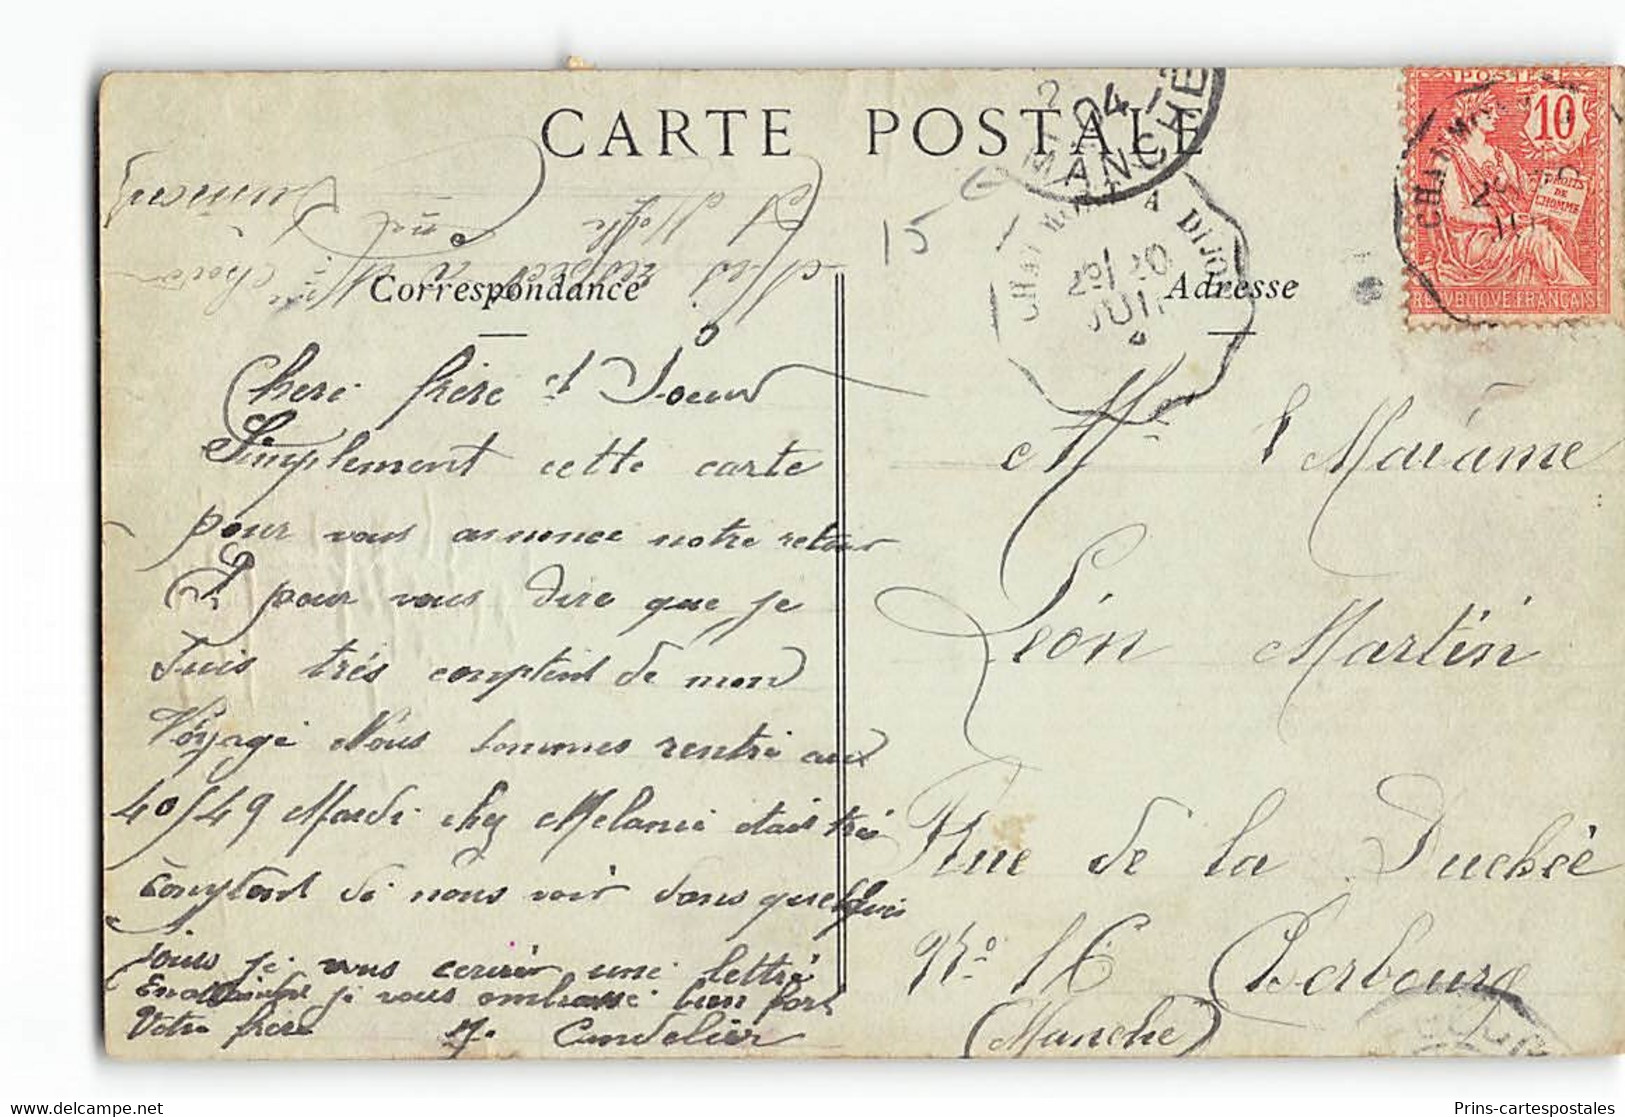 CARTE POSTALE
Correspondance
Adresse
Cheri frère et Soeur
Simplement cette carte
pour vous annonce notre retour
Et pour vous dire que je
Suis très comptent de mon
Voyage Nous sommes rentré aux
40/49 Mardi chez Melanie était très
Comptent de nous voir dans quelques
jours je vous ecrirer une lettre
En attendant je vous embrasse bien fort
Votre frère Candelier
Mr & Madame
Léon Martin
Rue de la Duchée
No 16 Cherbourg
(Manche)
POSTES
10
DROITS
DE
L'HOMME
REPVBLIQVE FRANÇAISE
04
MANCHE
A DIJON
JUIL
15
Prins-cartespostales